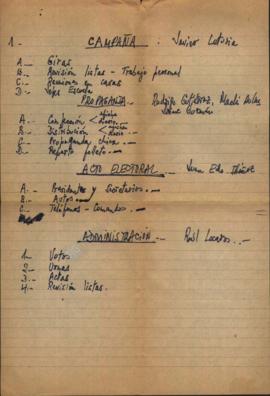 1- CAMPAÑA : Javier Loturia
A - Giras
B. Revisión listas - Trabajo personal
C. Reuniones en casas
D.- Jefes Escuela
PROPAGANDA Rodrigo Gutiérrez,
A.- Confección < afiches diario.-
B.- Distribución <
C.- Propaganda chica.-
D.- Reparto folleto.-
ACTO ELECTORAL.- Juan Edo
A.- Presidentes y Secretarios.-
B.- Autos.-
C.- Teléfonos - Comandos.-
ADMINISTRACIÓN.- Raúl
1.- Votos
2.- Urnas
3.- Actas
4.- Revisión listas.